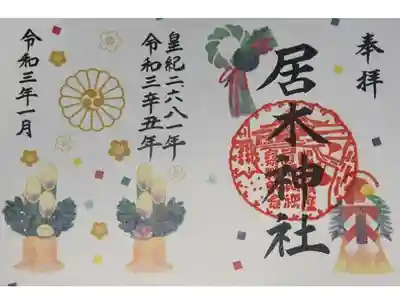 奉拝
居木神社
皇紀二六八一年
令和三辛丑年
令和三年一月